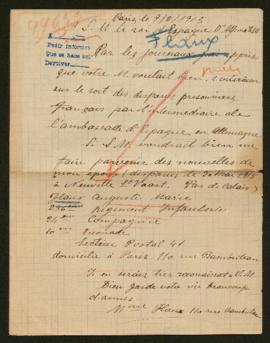 Paris le 9/8/1915
S. M. le roi d'Espagne d'Alfonse XIII
Pedir informes
Que se hace sel
Dertiver
Haux
Par les journaux j'ai appris
que votre M. voulait bien s'intéresser
sur le sort des disparus prisonniers
français par l'intermédiaire de
l'ambassade d'Espagne en Allemagne
Si S.M. voudrait bien me
faire parvenir des nouvelles de
mon époux disparus de 30 Mai 1915
à Neuville St Vaast. (Pas de Calais)
Haux Auguste Marie
régiment Infanterie
24ème Compagnie
10ème escouade
Secteur Postal 41
domicilié à Paris 110 rue Rambuteau
Je en serais très reconnaissante à S.M.
Dieu garde votre vie beaucoup
d'années
Mme Haux 110 rue Rambuteau